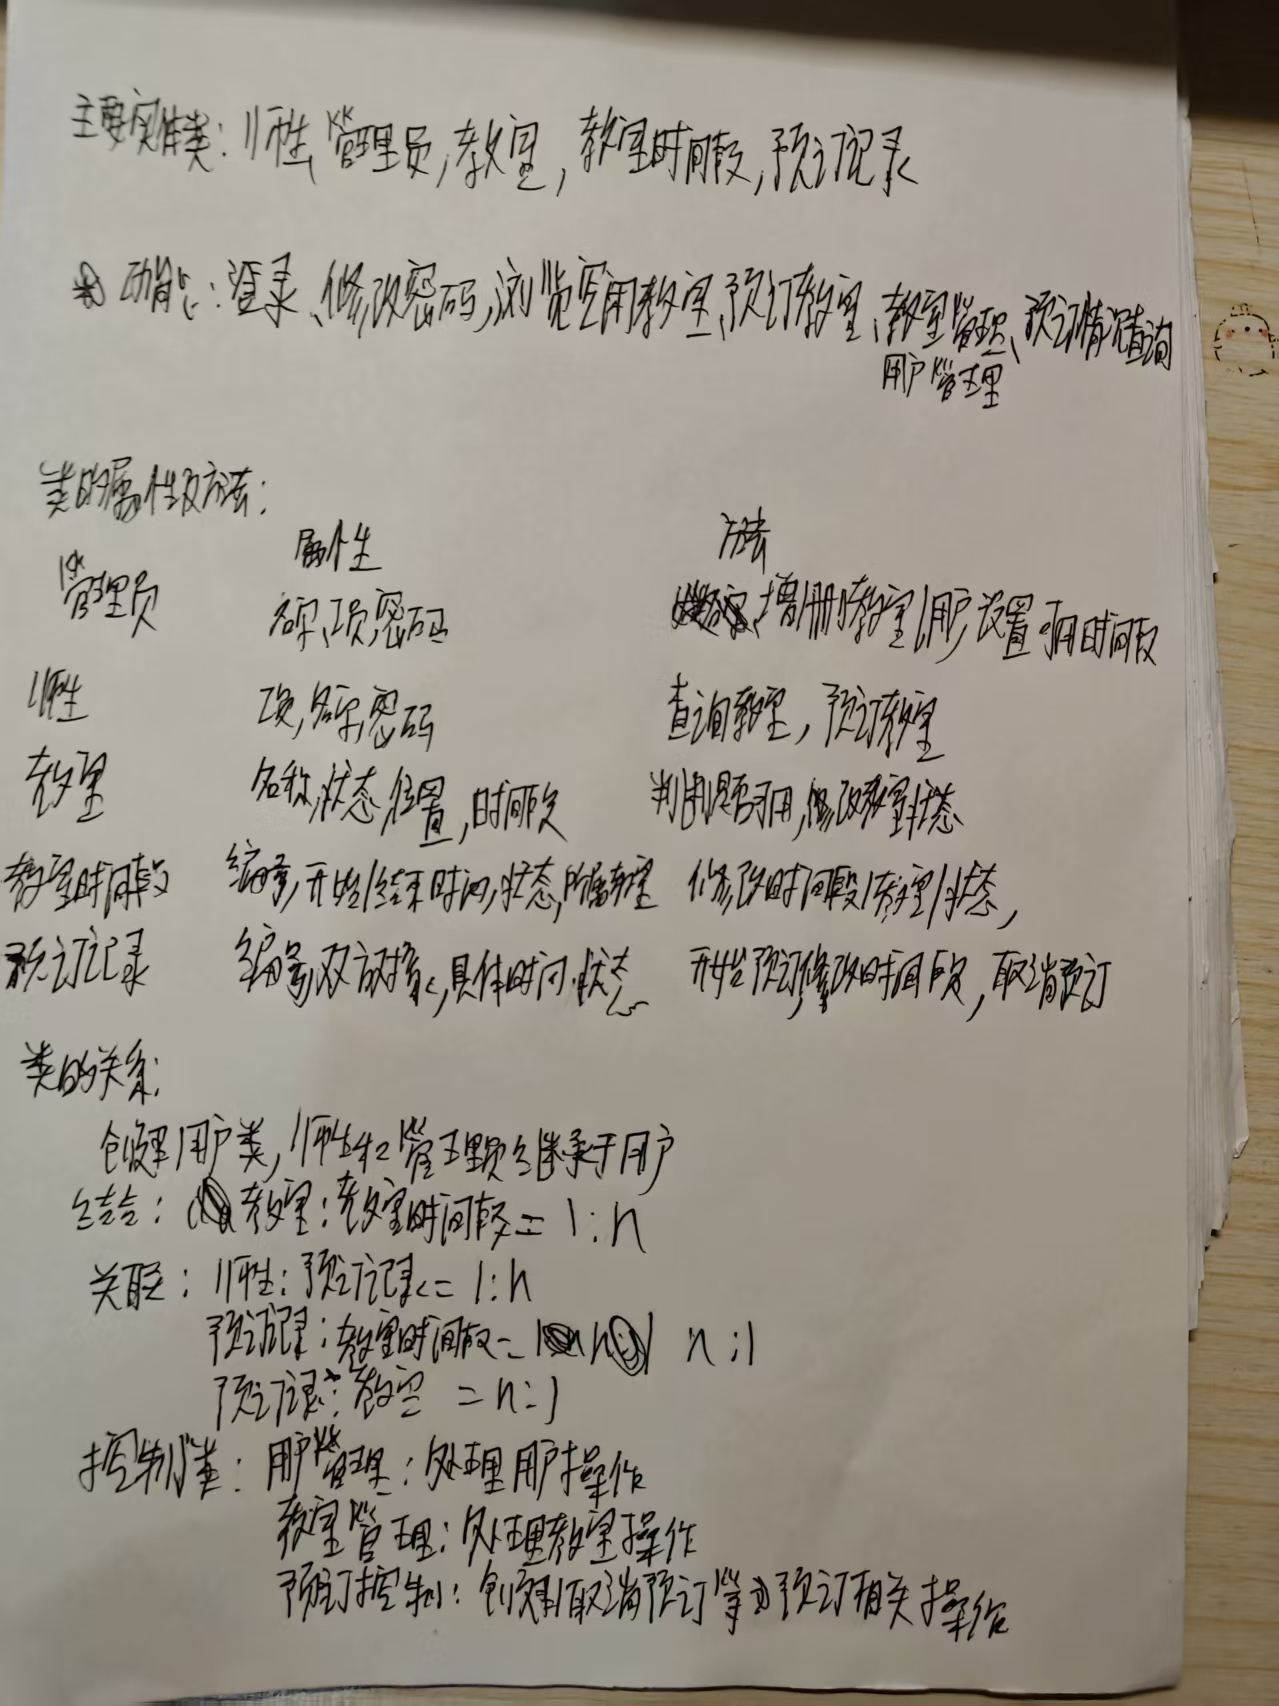 主要实体类：师生,管理员,教室,教室时间段,预订记录
功能：登录、修改密码,浏览空闲教室、预订教室、教室管理、预订情况查询
用户管理
类的属性及方法：
属性 方法
管理员 名字,工号,密码 增/删教室/用户,设置可用时间段
师生 工号,名字,密码 查询教室,预订教室
教室 名称,状态,位置,时间段 判断是否可用,修改教室状态
教室时间段 编号,开始/结束时间,状态,所属教室 修改时间段/教室/状态,
预订记录 编号,双方,具体时间,状态 开始预订,修改时间段,取消预订
类的关系：
创建用户类,师生和管理员继承于用户
教室：教室时间段=1:n
关联：师生：预订记录=1:n
预订记录：教室时间段= n:1
预订记录：教室 =n:1
控制类：用户管理：处理用户操作
教室管理：处理教室操作
预订控制：创建/取消预订等预订相关操作